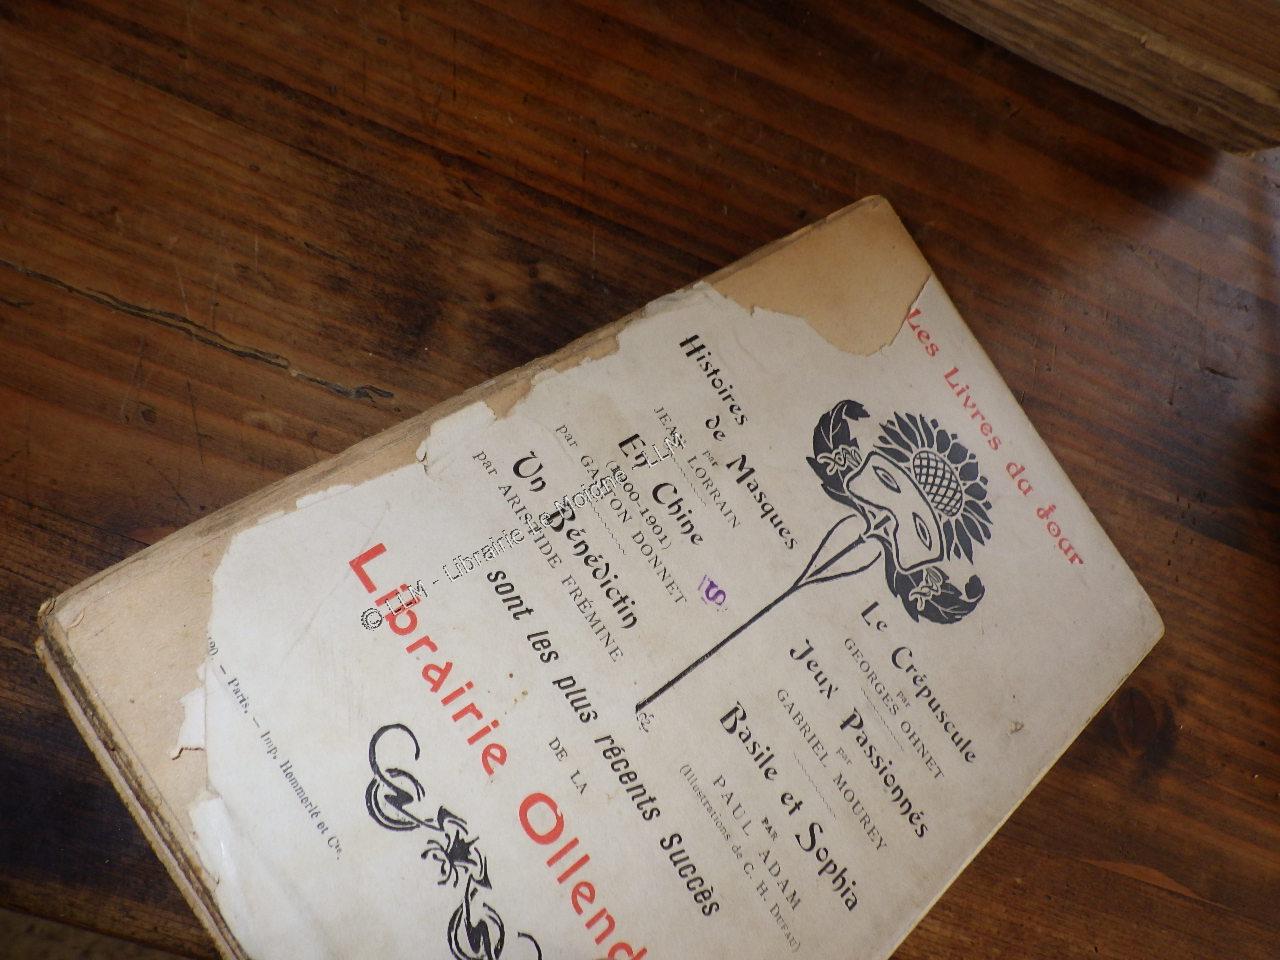 Les Livres du Jour
Histoires
de Masques
par
JEAN LORRAIN
En Chine
(1900-1901)
par GASTON DONNET
Un Bénédictin
par ARISTIDE FRÉMINE
Le Crépuscule
par
GEORGES OHNET
Jeux Passionnés
par
GABRIEL MOUREY
Basile et Sophia
PAR
PAUL ADAM
(Illustrations de C. H. DUFAU)
sont les plus récents succès
DE LA
Librairie Ollend
90. — Paris. — Imp. Hemmerlé et Cie.